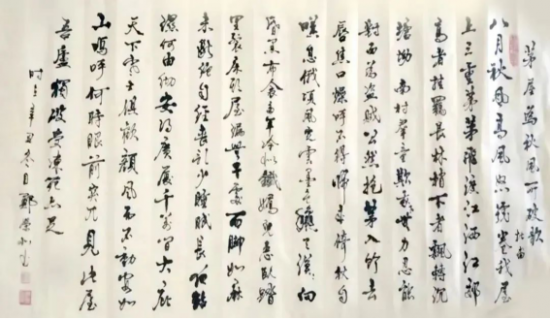 茅屋為秋風所破歌
杜甫
八月秋風高風怒號卷我屋
上三重茅茅飛渡江洒江郊
高者挂罥長林梢下者飄轉沉
塘坳南村群童欺我老無力忍能
對面為盜賊公然抱茅入竹去
唇焦口燥呼不得歸來倚杖自
嘆息俄頃風定雲墨色秋天漠漠向
昏黑布衾多年冷似鐵嬌兒惡臥踏
里裂床頭屋漏無干處雨腳如麻
未斷絕自經喪亂少睡眠長夜沾
濕何由徹安得廣廈千萬間大庇
天下寒士俱歡顏風雨不動安如
山嗚呼何時眼前突兀見此屋
吾廬獨破受凍死亦足
時在辛丑春日鄭